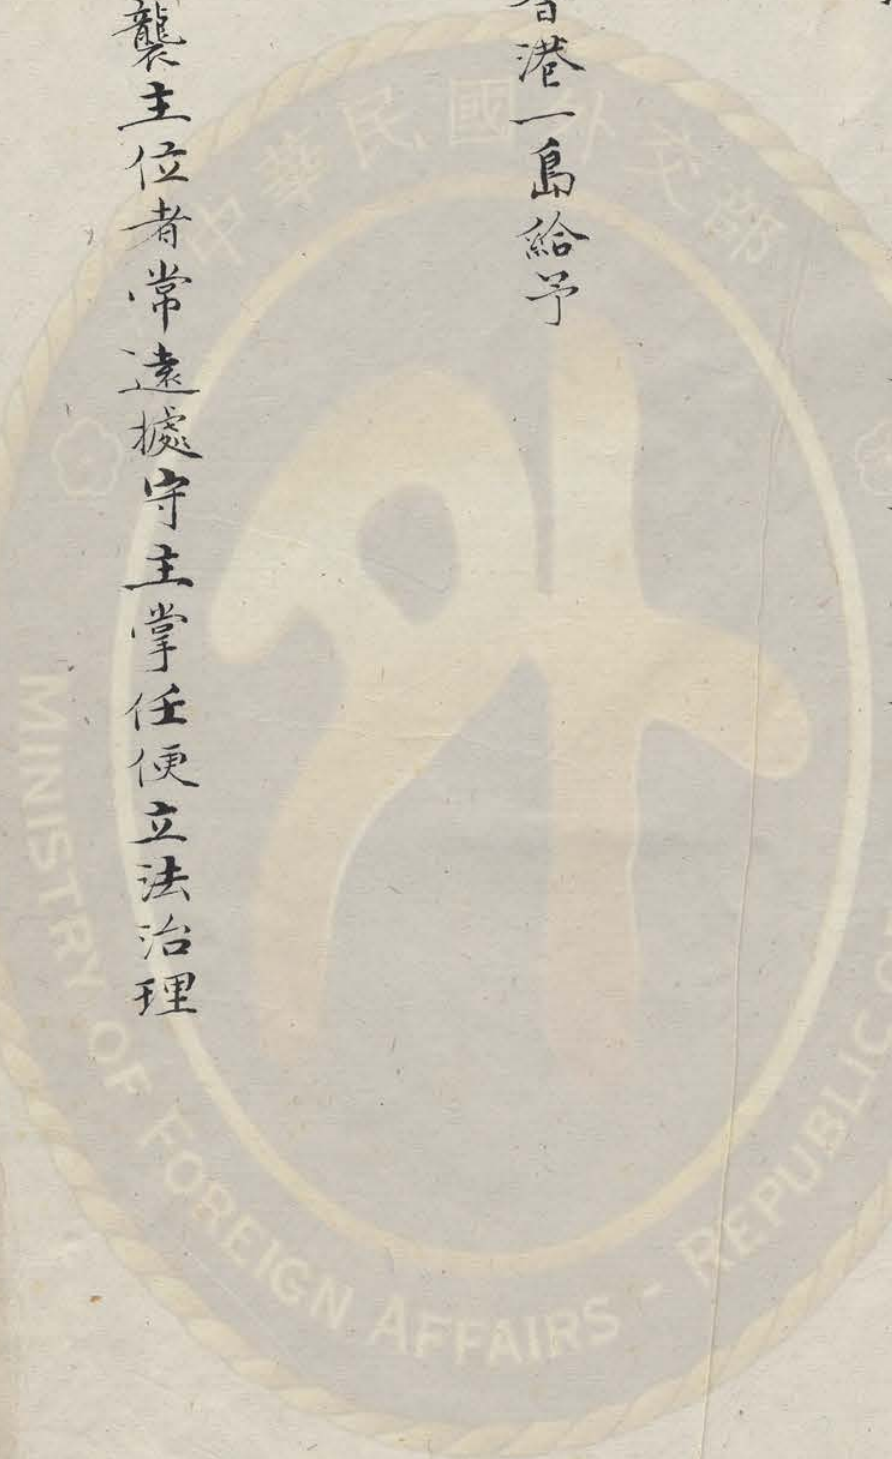 香港一島給予
襲主位者常遠據守主掌任便立法治理
中華民國外交部
MINISTRY OF FOREIGN AFFAIRS - REPUBLIC O